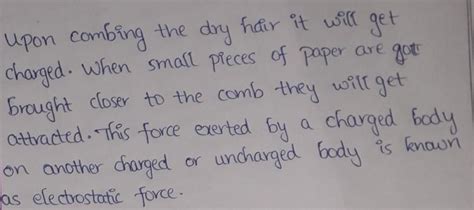 Upon combing the dry hair it will get
charged. When small pieces of paper are
brought closer to the comb they will get
attracted. This force exerted by a charged body
on another charged or uncharged body is known
as electrostatic force.